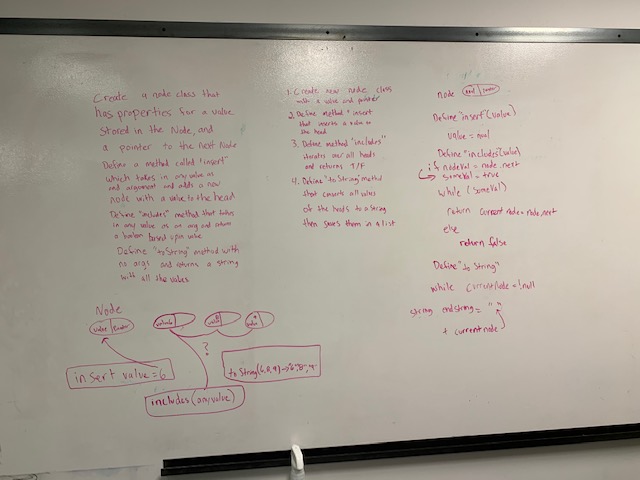 Create a node class that
has properties for a value
stored in the Node, and
a pointer to the next Node
Define a method called "insert"
which takes in any value as
and argument and adds a new
node with a value to the head
Define "includes" method that takes
in any value as an arg and returns
a boolean based upon value
Define "toString" method with
no args and returns a string
with all the values
Node
value
insert value = 6
value 6
value
?
includes(any value)
to String(6,8,9) →
1. Create new node class
with a value and pointer
2. Define method "insert
that inserts a value to
the head
3. Define method "includes"
iterates over all heads
and returns T/F
4. Define "toString" method
that converts all values
of the heads to a string
then saves them in a list
node
Define "insert"(value)
value = 
Define "includes"(value)
if nodeVal = node.next
someVal = true
while (someVal)
return currentnode = node.next
else
return false
Define "to String"
while currentNode = !null
string endstring = " "
+ currentnode